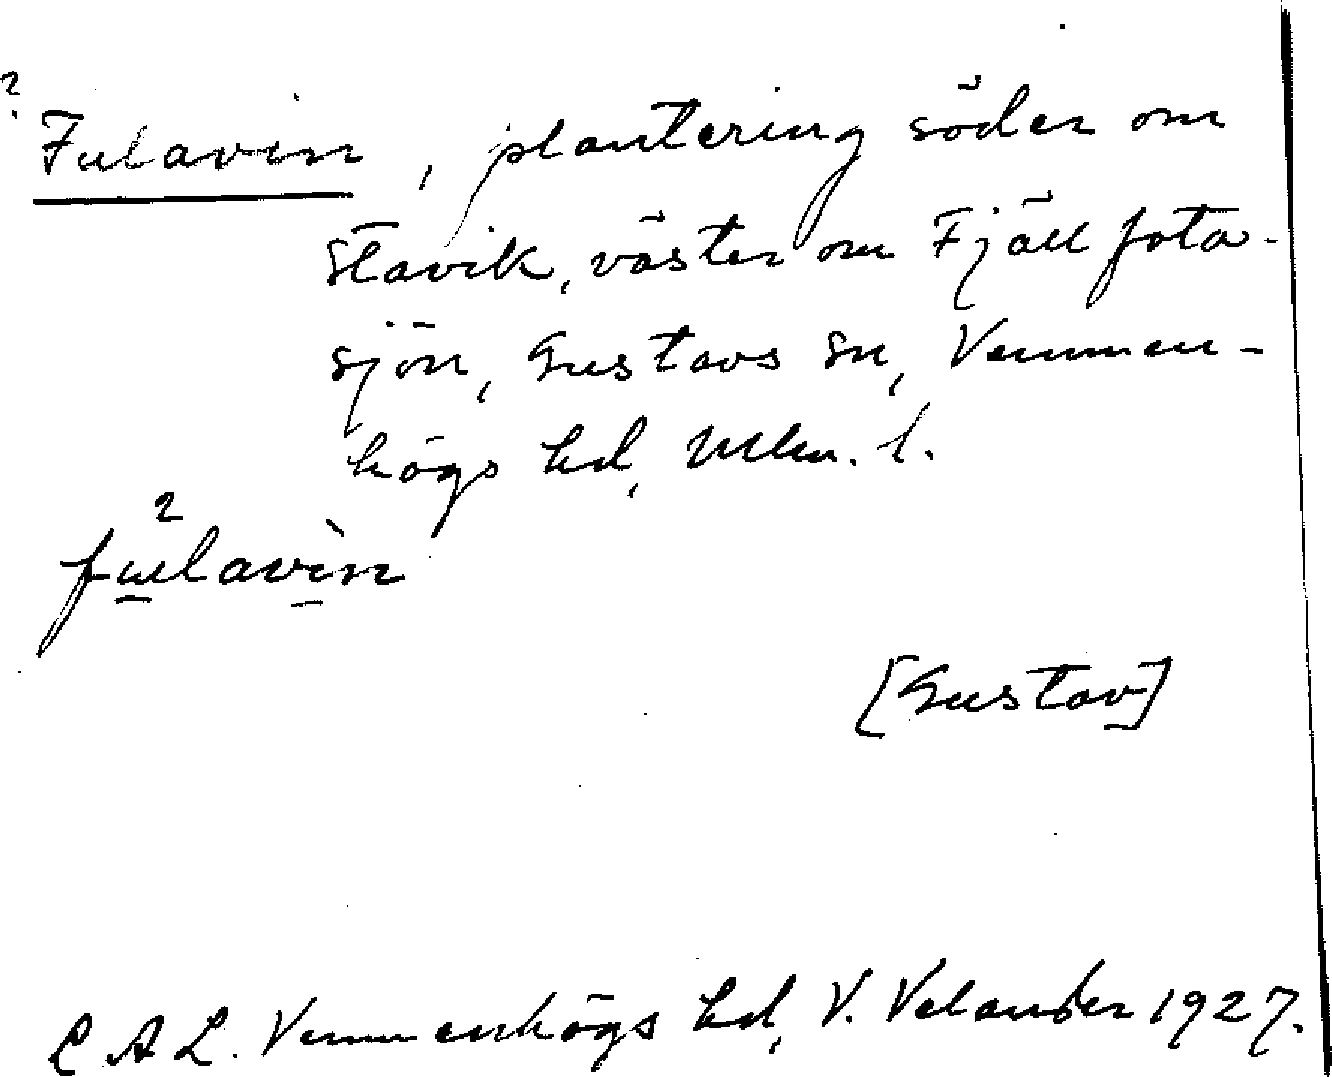 ? Fulavin, plantering söder om
Stavik, väster om Fjällfota-
sjön, Gustavs sn, Vemmen-
högs hd, Mlm. l.
2
fulavìn
[Gustav]
L A L. Vemmenhögs hd, V. Velander 1927.